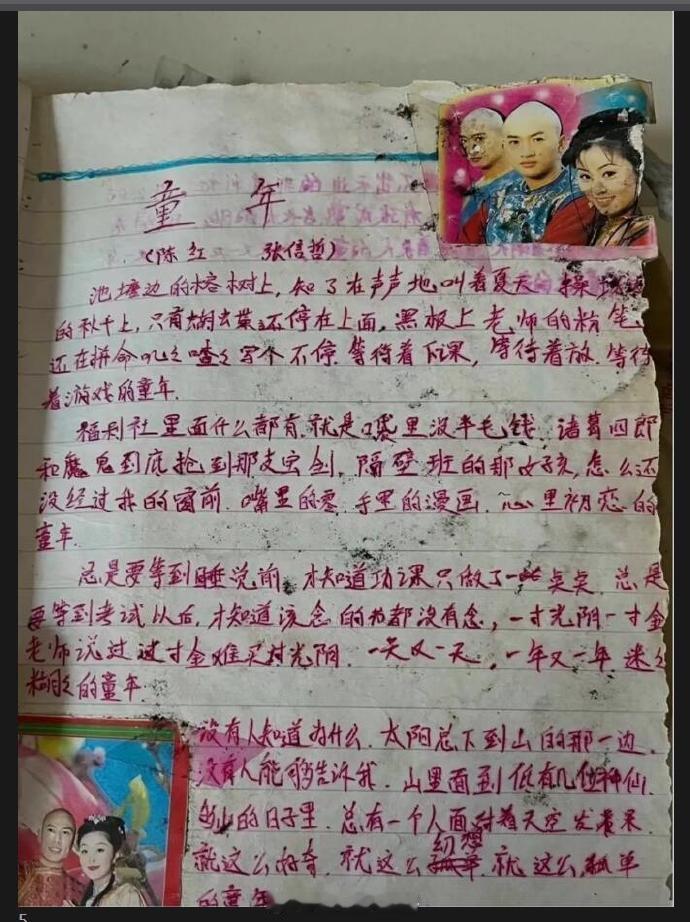 童年
(陈红 张信哲)
池塘边的榕树上,知了在声声地叫着夏天 操场
的秋千上,只有蝴蝶还停在上面,黑板上老师的粉笔,
还在拼命叽叽喳喳写个不停.等待着下课,等待着放.等待
着游戏的童年.
福利社里面什么都有.就是口袋里没半毛钱 诸葛四郎
和魔鬼到底抢到那支宝剑,隔壁班的那女孩,怎么还
没经过我的窗前.嘴里的零.手里的漫画.心里初恋的
童年.
总是要等到睡觉前,才知道功课只做了一点点.总是
要等到考试以后,才知道该念的书都没有念,一寸光阴一寸金
老师说过过寸金难买寸光阴.一天又一天,一年又一年 迷迷
糊糊的童年.
没有人知道为什么.太阳总下到山的那一边.
没有人能够告诉我.山里面到底有几位神仙.
的日子里.总有一个人面对着天空发呆.
就这么好奇.就这么幻想 就这么孤单
的童年
5